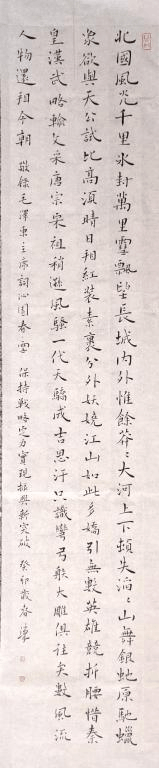 北國風光千里冰封萬里雪飄望長城內外惟餘莽々大河上下頓失滔々山舞銀蛇原馳蠟
象欲與天公試比高須晴日看紅裝素裹分外妖嬈江山如此多嬌引無數英雄競折腰惜秦
皇漢武略輸文采唐宗宋祖稍遜風騷一代天驕成吉思汗只識彎弓射大雕俱往矣數風流
人物還看今朝 敬錄毛澤東主席詞沁園春雪 保持戰略定力實現振興新突破 癸卯